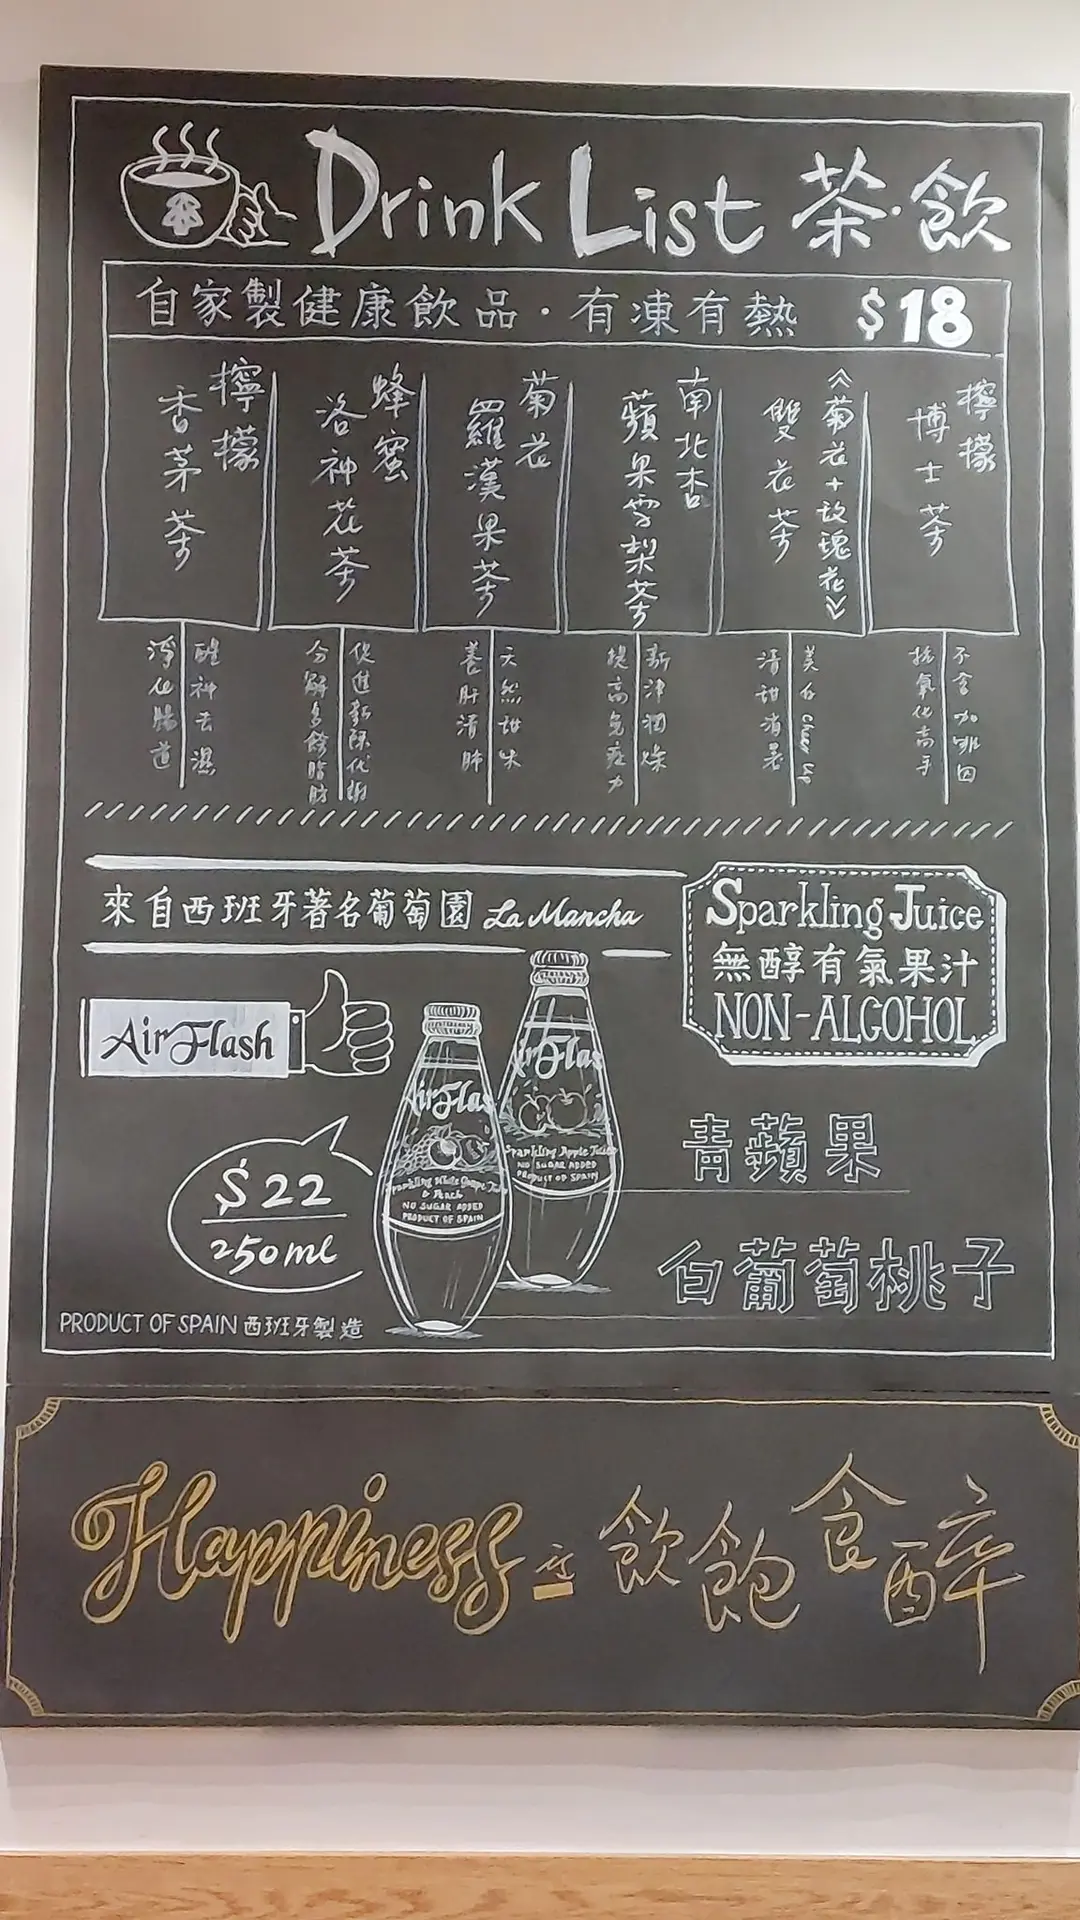 Drink List 茶·飲
自家製健康飲品·有凍有熱 $18
檸檬
博士茶
《菊花+玫瑰花》
雙花茶
南北杏
蘋果雪梨茶
菊花
羅漢果茶
蜂蜜
洛神花茶
檸檬
香茅茶
不含咖啡因
抗氧化高手
美白 cheer up
清甜消暑
潤燥
提高免疫力
天然甜味
養肝清肺
促進新陳代謝
分解多餘脂肪
醒神去濕
淨化腸道
來自西班牙著名葡萄園 La Mancha
Sparkling Juice
無醇有氣果汁
NON-ALCOHOL
AirFlash
AirFlas
Sparkling Apple Juice
NO SUGAR ADDED
PRODUCT OF SPAIN
AirFlas
Sparkling White Grape Jui
& Peach
NO SUGAR ADDED
PRODUCT OF SPAIN
青蘋果
$22
250ml
白葡萄桃子
PRODUCT OF SPAIN 西班牙製造
Happiness is 飲飽食醉